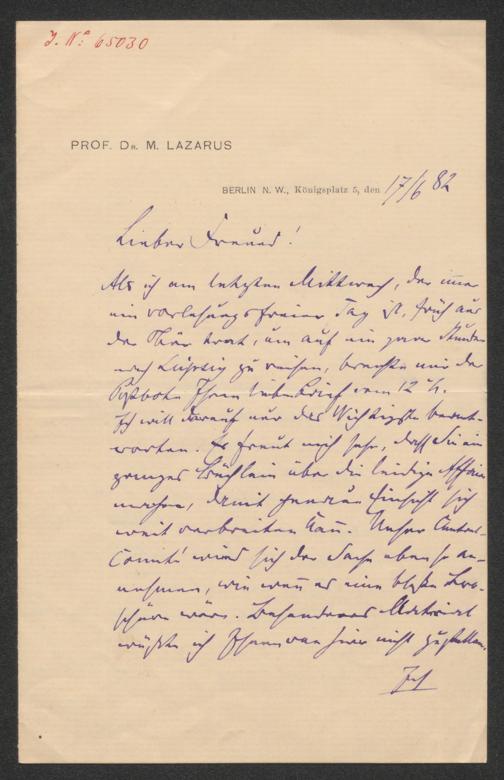 J. Nº 65030
PROF. DR. M. LAZARUS
BERLIN N. W., Königsplatz 5, den 17/6 82
Lieber Freund!
Als ich am letzten Mittwoch, der immer
ein vorlesungsfreier Tag ist, früh aus
der Thür trat, um auf ein paar Stunden
nach Leipzig zu reisen, brachte mir der
Postbote Ihren lieben Brief vom 12 d.
Ich will darauf nur das Wichtigste beant-
worten. Es freut mich sehr, daß Sie ein
ganzes Büchlein über die leidige Affaire
machen, damit genaue Einsicht sich
weit verbreiten kann. Unser
Comité wird sich der Sache eben so an-
nehmen, wie wenn es eine bloße Bro-
schüre wäre. Besonderes Material
wüßte ich Ihnen von hier nicht zuzustellen.
Ich